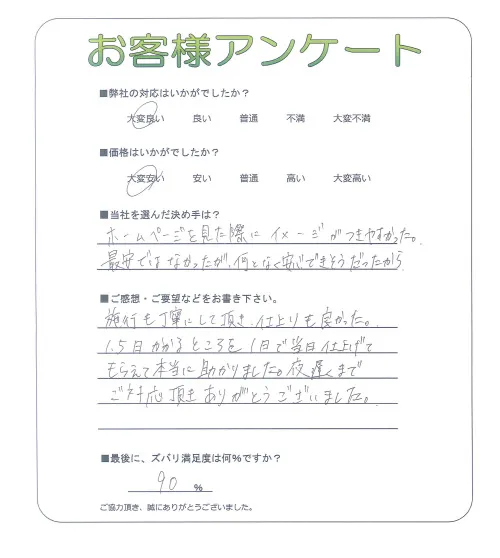 お客様アンケート
■弊社の対応はいかがでしたか？
大変良い 良い 普通 不満 大変不満
■価格はいかがでしたか？
大変安い 安い 普通 高い 大変高い
■当社を選んだ決め手は？
ホームページを見た際に イメージがつきやすかった。
最安ではなかったが、何となく安心できそうだったから
■ご感想・ご要望などをお書き下さい。
施行も丁寧にして頂き、仕上りも良かった。
1.5日かかるところを1日で当日仕上げて
もらえて本当に助かりました。夜遅くまで
ご対応頂きありがとうございました。
■最後に、ズバリ満足度は何%ですか？
90 %
ご協力頂き、誠にありがとうございました。